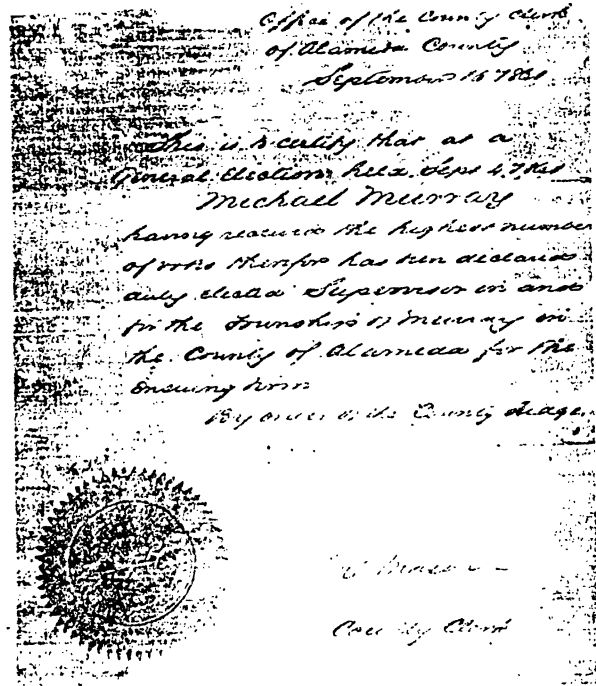 Office of the County Clerk
of Alameda County
September 15
This is to certify that at a
General Election held Sept 4
Michael Murray
having received the highest number
of votes therefor has been declared
duly elected Supervisor in and
for the Township of Murray in
the County of Alameda for the
Ensuing term
By order of the County Judge
County Clerk